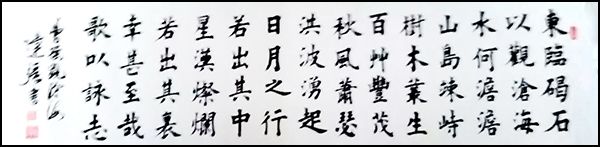 東臨碣石
以觀滄海
水何澹澹
山島竦峙
樹木叢生
百艸豐茂
秋風蕭瑟
洪波湧起
日月之行
若出其中
星漢燦爛
若出其裏
幸甚至哉
歌以詠志
曹操觀滄海
書